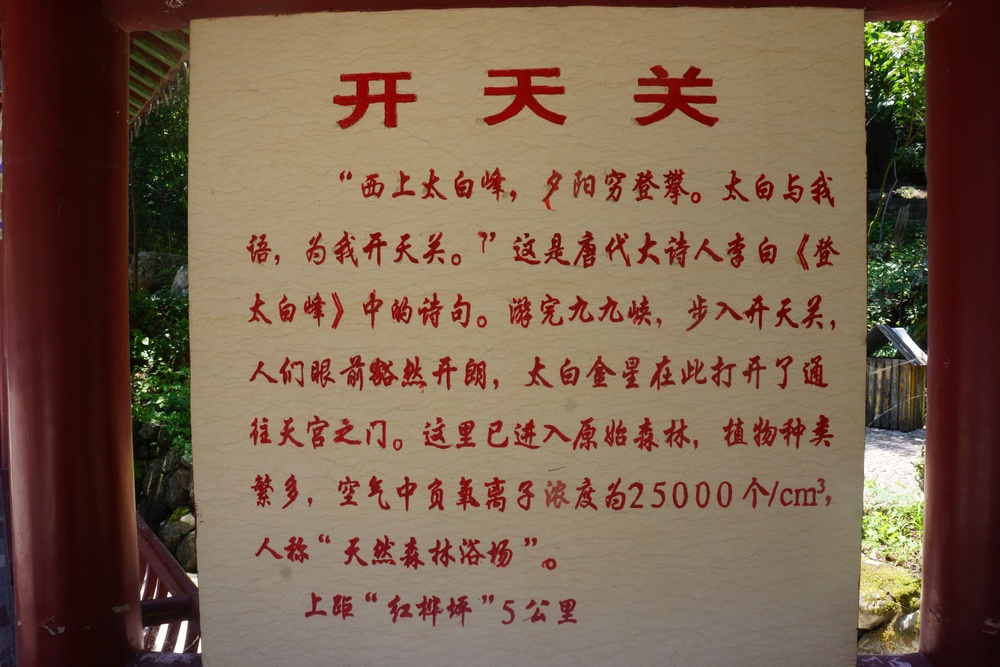 开天关
“西上太白峰，夕阳穷登攀。太白与我
语，为我开天关。”这是唐代大诗人李白《登
太白峰》中的诗句。游完九九峡，步入开天关，
人们眼前豁然开朗，太白金星在此打开了通
往天宫之门。这里已进入原始森林，植物种类
繁多，空气中负氧离子浓度为25000个/cm³，
人称“天然森林浴场”。
上距“红桦坪”5公里